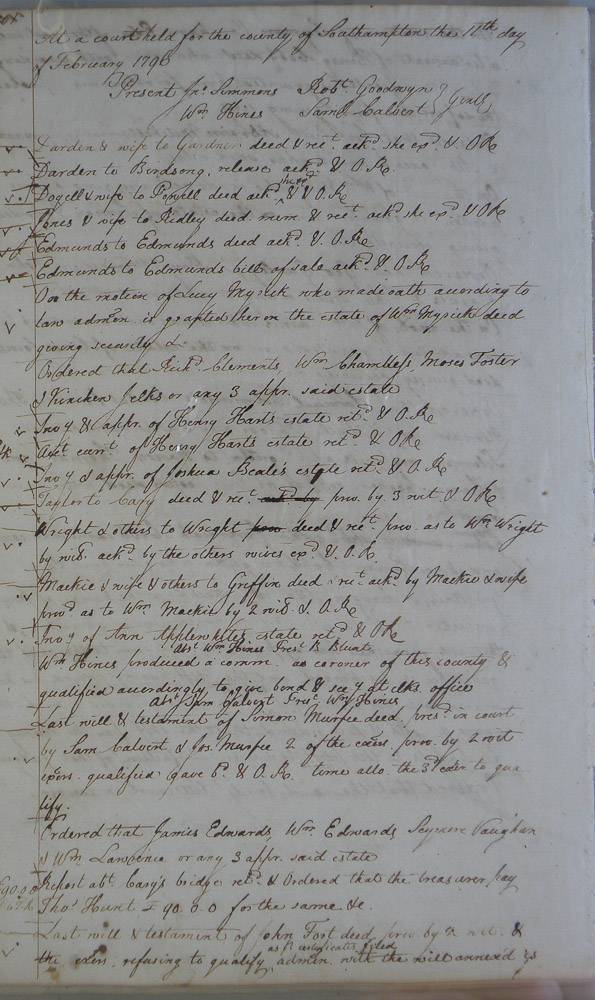 At a court held for the county of Southampton the 11th day
of February 1796
Present Jno. Simmons Robt. Goodwyn
Wm Hines Saml Calvert } Gent.
Darden & wife to Gardner deed & rect. ackd. she exd. & O.Re
Darden to Birdsong, release ackd. & O.Re.
Dogell & wife to Powell deed ackd. she exd. & O.Re
Jones & wife to Ridley deed mem. & rect. ackd she exd. & O Re
Edmunds to Edmunds deed ackd. & O.Re
Edmunds to Edmunds bill of sale ackd. & O.Re
On the motion of Lucy Myrick who made oath according to
law admon. is granted her on the estate of Wm Myrick deed
giving security &.
Ordered that Richd. Clements, Wm. Chambless, Moses Foster
& Kinchen Jelks or any 3 appr. said estate
Invy & appr. of Henry Harts estate retd. & O.Re
Acct. currt. of Henry Harts estate retd & O Re
Invy & appr. of Joshua Beale's estate retd. & O.Re
Taylor to Cary deed & rect. ackd by prov. by 3 wit & O Re
Wright & others to Wright prov deed & rect. prov. as to Wm Wright
by wits. ackd. by the others wives exd. & O.Re.
Mackie & wife & others to Griffin deed & rect. ackd. by Mackie & wife
provd. as to Wm. Mackie by 2 wits. & O.Re
Invy of Ann Applewhites estate retd & O Re
Abst Wm Hines Prest B. Blunt
Wm Hines produced a comm. as coroner of this county &
qualified accordingly to give bond & secy at clks. office
Abst Sam Calvert Prest. Wm Hines
Last will & testament of Simon Murfee deed. presd. in court
by Sam Calvert & Jos. Murfee 2 of the exors prov. by 2 wits
exors. qualified gave bd. & O.Re. time allo. the 3d exor to qua
lify.
Ordered that James Edwards, Wm. Edwards Seymore Vaughan
& Wm Lawrence or any 3 appr. said estate
£90.0.0 Report abt. Cary's bridge retd. & Ordered that the treasurer pay
Thos. Hunt £ 90.0.0 for the same &c.
Last will & testament of John Fort deed. prov. by 2 wit. &
as pr certificates filed
the exors. refusing to qualify, admon. with the will annex'd is